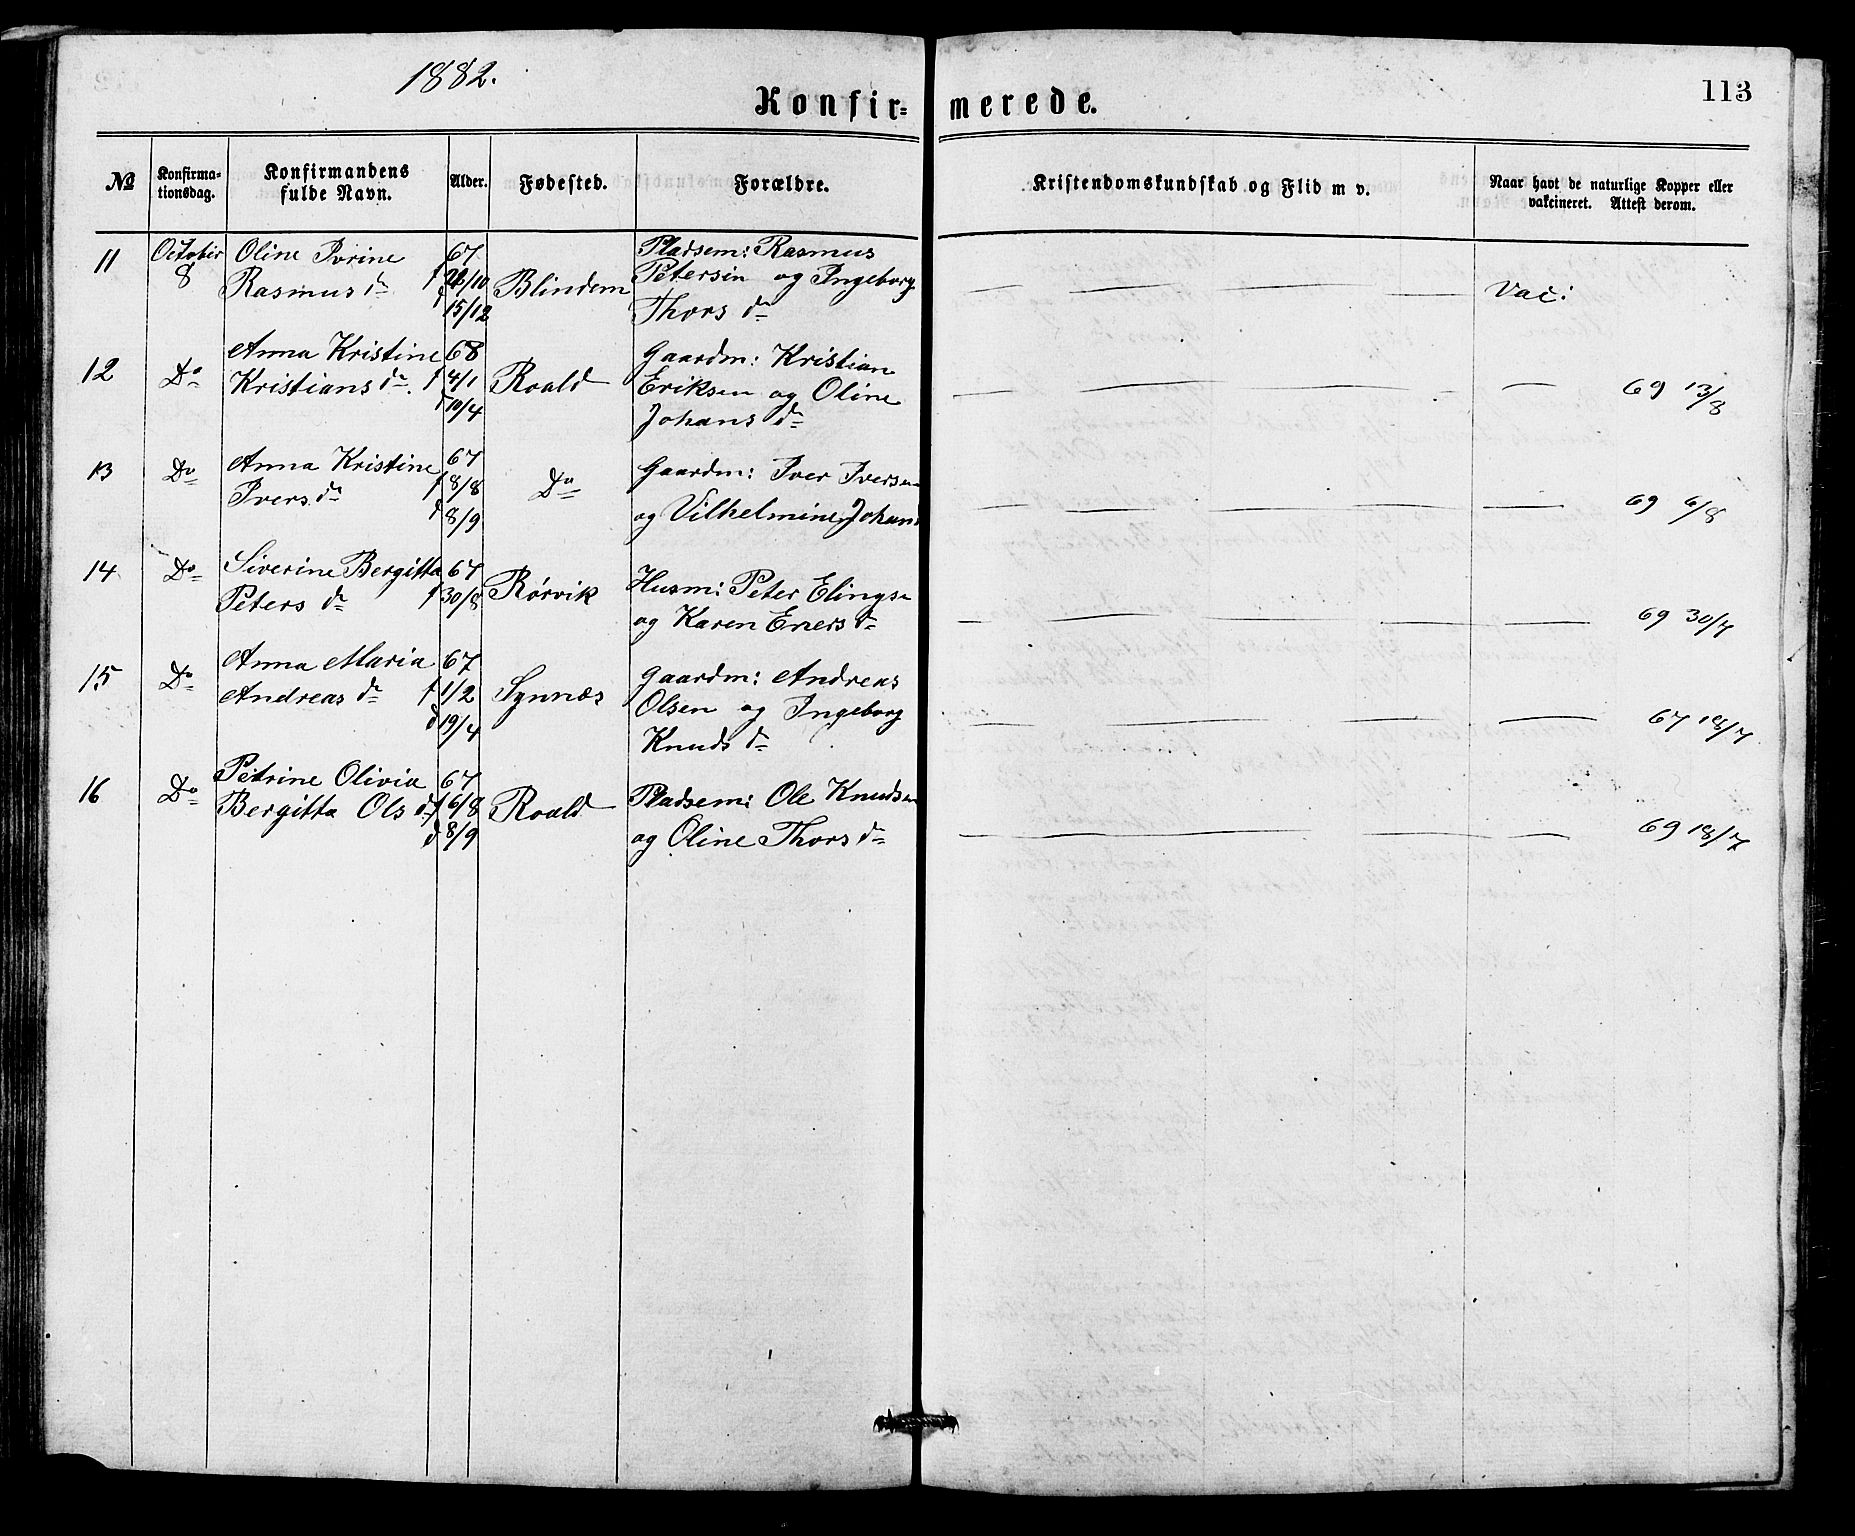 1882.
113
Konfir=merede.
№ Konfirma-tionsdag. Konfirmandens fulde Navn. Alder. Fødested. Forældre. Kristendomskundskab og Flid m v. Naar havt de naturlige Kopper eller vakcineret. Attest derom.
11 October Oline Ivrine 67 Pladsem: Rasmus
8 Rasmus dr f 22/10 Blindem Petersen og Ingeborg Vac:
d 15/12 Thors dr
12 Do Anna Kristine 68 Gaardm: Kristian
Kristians dr. f 4/1 Roald Eriksen og Oline — — 69 13/8
d 10/4 Johans dr
13 Do Anna Kristine 67 Do Gaardm: Iver Iversen
Ivers dr f 8/8
d 8/9 og Vilhelmine Johans — — 69 6/8
14 Do Siverine Bergitta 67 Rørvik Husm: Peter Elingsn
Peters dr f 30/8 og Karen Eners dr — 69 30/7
15 Do Anna Maria 67 Gaardm: Andreas
Andreas dr f 1/2 Synnæs Olsen og Ingeborg — — 67 18/7
d 19/4 Knuds dr
16 Do Petrine Olivia 67
Bergitta Ols dr f 6/8 Roald Pladsem: Ole Knudsen
d 8/9 og Oline Thors dr — — 69 18/7